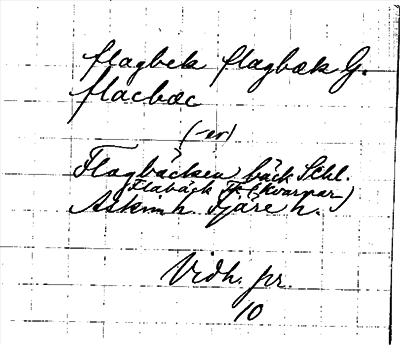 flagbek flagbæk G.
flacbæc
(-er)
Flagbäcken bäck Schl.
Flabäck (Kvarnar)
Askims h. Fjäre h.
Vidh. pr.
10